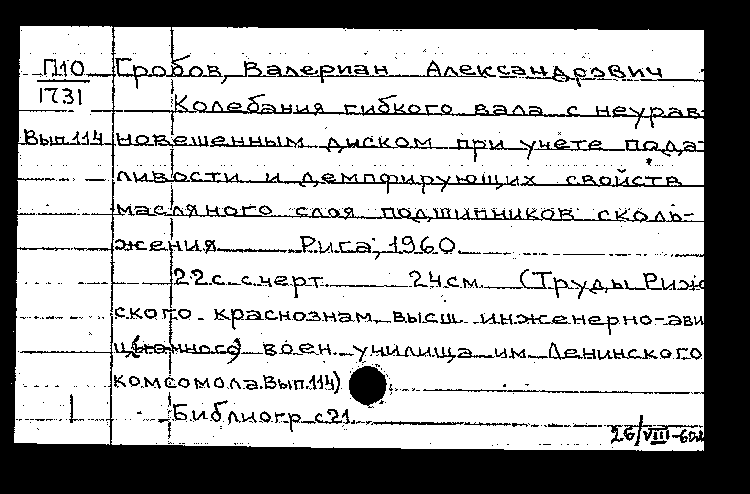 П10 Гробов, Валериан Александрович
1731
Колебания гибкого вала с неурав-
Вып.114 новешенным диском при учёте пода-
ливости и демпфирующих свойств
масляного слоя подшипников сколь-
жения Рига, 1960.
22с. с черт. 24см (Труды Риж
ского краснознам. высш. инженерно-ави
ц(ионного) воен. училища им. Ленинского
комсомола. Вып.114)
Библиогр. с21.
26/VIII-60